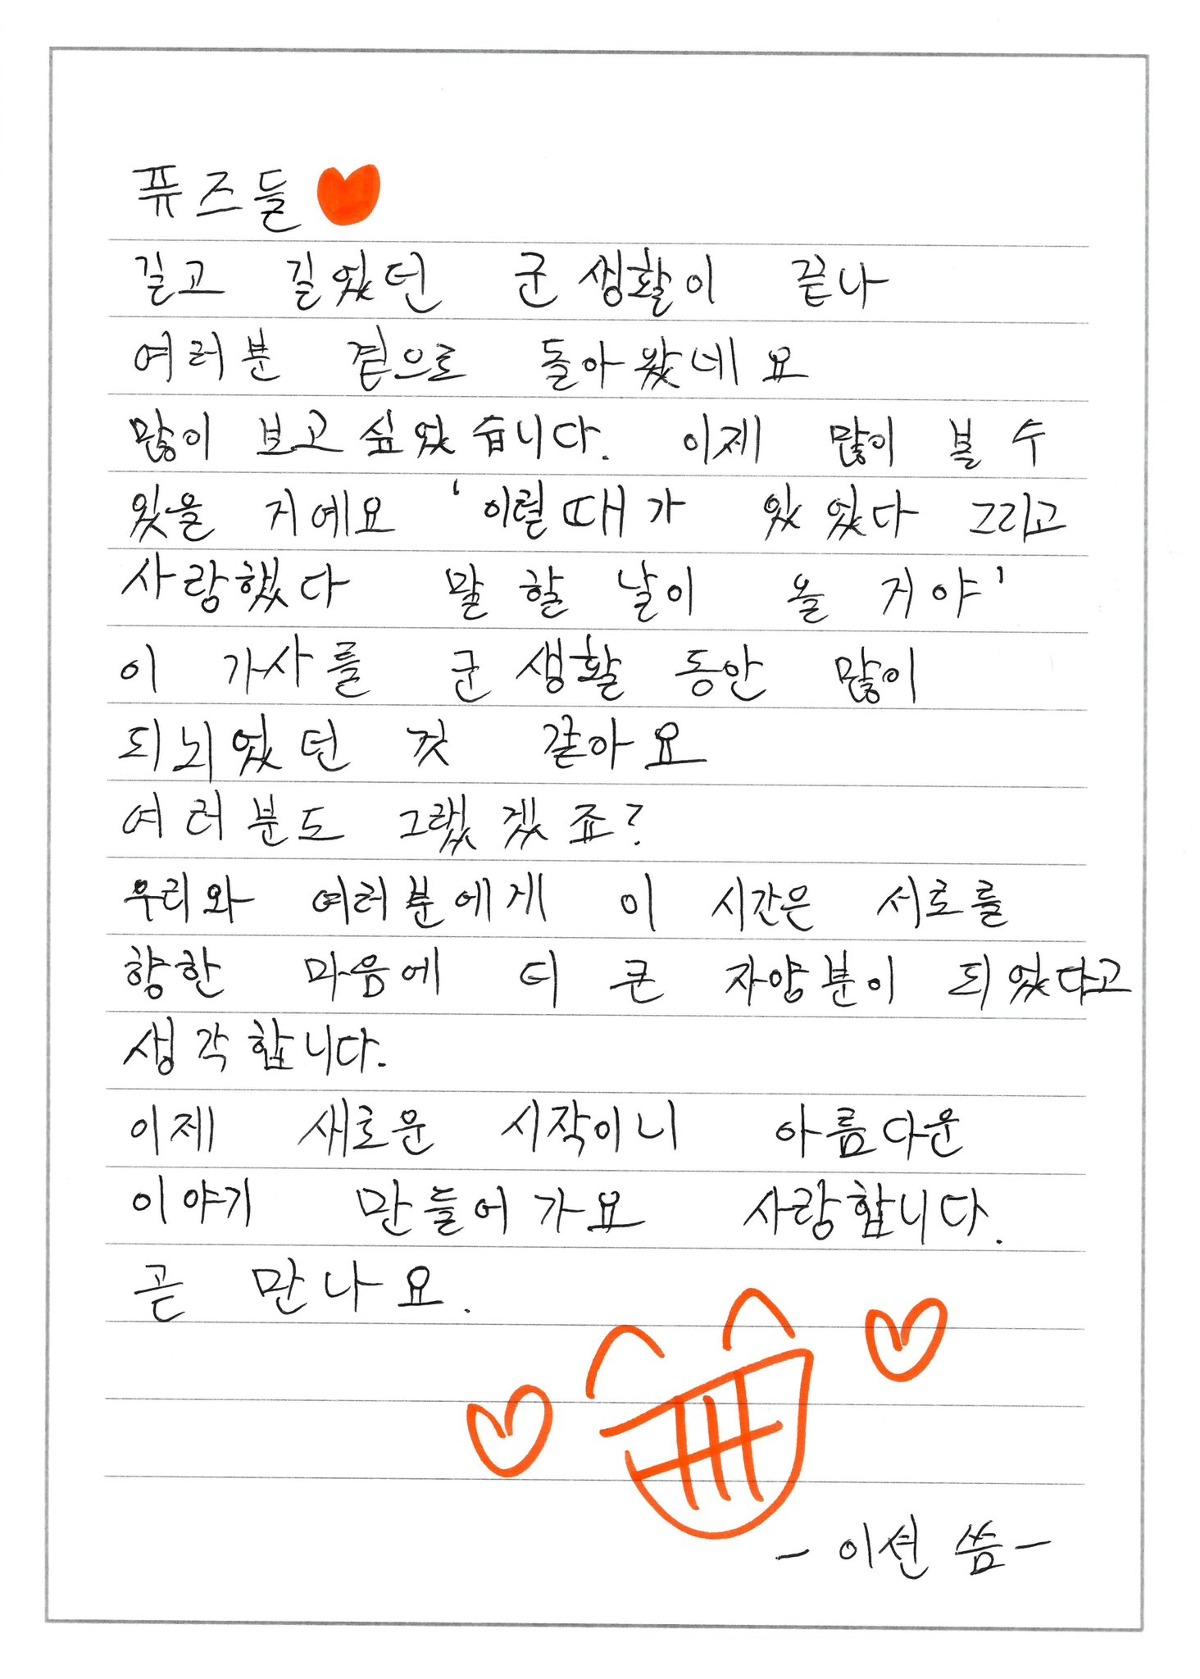 퓨즈들
길고 길었던 군생활이 끝나
여러분 곁으로 돌아왔네요
많이 보고싶었습니다. 이제 많이 볼 수
있을 거예요 '이럴때가 있었다 그리고
사랑했다 말할 날이 올 거야'
이 가사를 군생활 동안 많이
되뇌었던 것 같아요
여러분도 그랬겠죠?
우리와 여러분에게 이 시간은 서로를
향한 마음에 더 큰 자양분이 되었다고
생각합니다.
이제 새로운 시작이니 아름다운
이야기 만들어가요 사랑합니다.
곧 만나요.
- 이션 씀 -